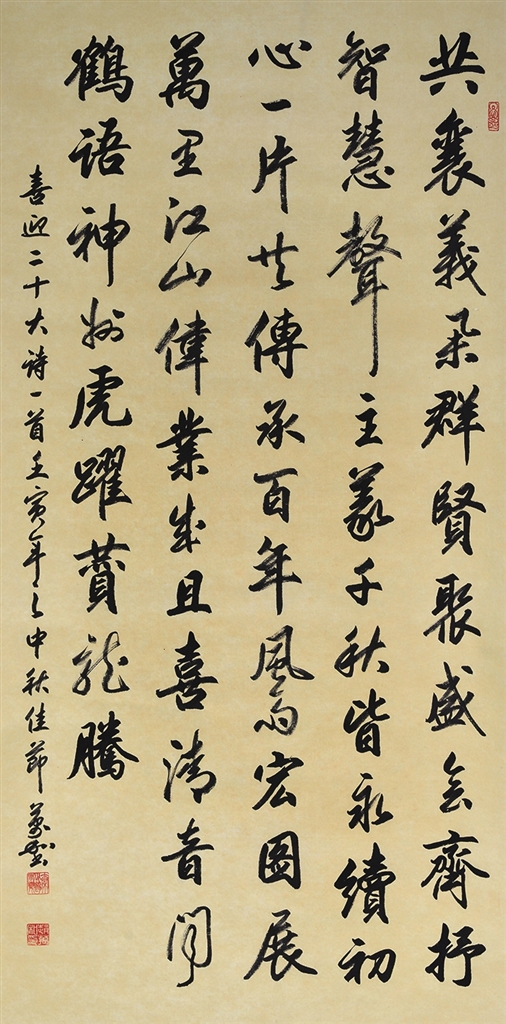 共襄義举群賢聚盛会齊抒
智慧聲主義千秋皆永續初
心一片共傳承百年風雨宏圖展
萬里江山偉業成且喜清音闻
鶴語神州虎躍贊龍騰
喜迎二十大诗一首壬寅年之中秋佳節